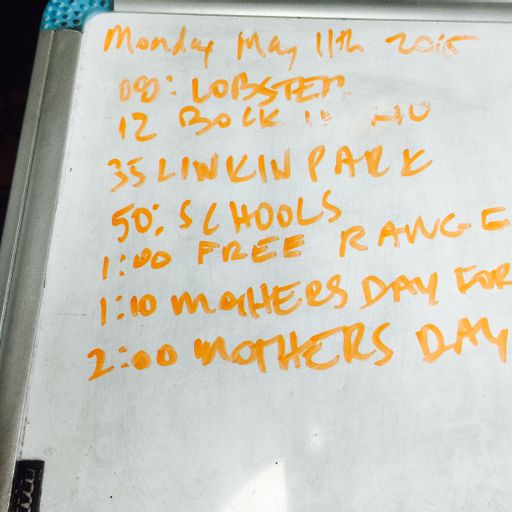 Monday May 11th 2015
00: LOBSTER
12 BOCK
35 LINKIN PARK
50: SCHOOLS
1:00 FREE RANGE
1:10 MOTHERS DAY FOR
2:00 MOTHERS DAY